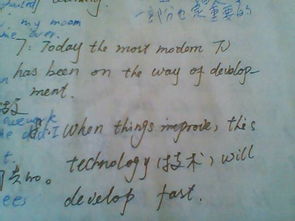 learning.
一部分也是重要的
my moom
7: Today the most modern TV
has been on the way of develop
ment.
When things improve, this
technology 技术, will
develop fast.
ees